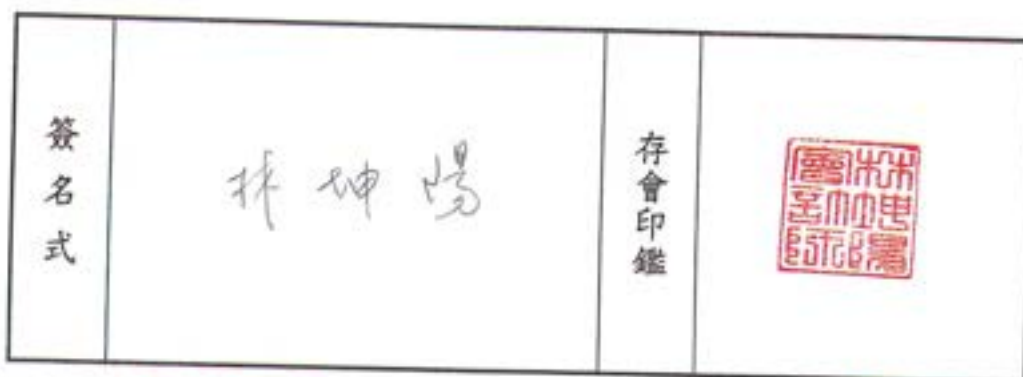 簽名式
林坤陽
存會印鑑
林坤陽會計師